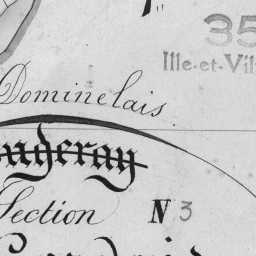 35
Ille-et-Vil
Dominelais
ugeray
Section N 3